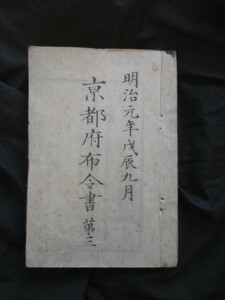 明治元年戊辰九月
京都府布令書 第三